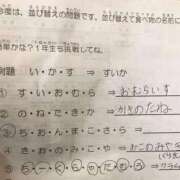 今度は、並び替えの問題です。並び替えて食べ物の名前に
簡単かな？1年生も挑戦してね。
例題 い・か・す ⇒ すいか
① す・い・お・む・ら ⇒ おむらいす
② の・ね・か・き・た ⇒ かきのたね
③ ち・お・ん・ま・こ・さ・ら ⇒
④ き・お・の・み・こ・や ⇒
⑤ ち・ー・く・ら・や・だ・む・う ⇒ クラム